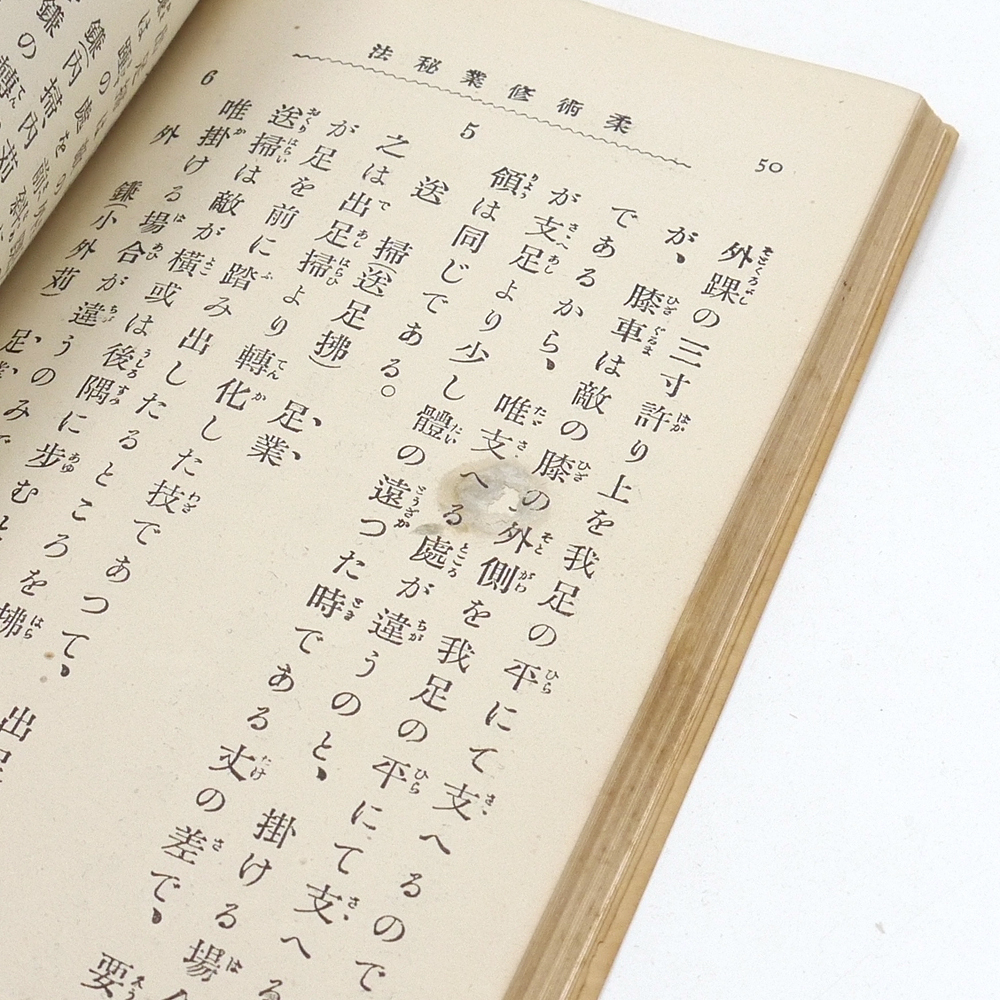 50
柔術修業秘法
外踝の三寸許り上を我足の平にて支へるので
が、膝車は敵の膝の外側を我足の平にて支へる
であるから、唯支へる處が違うのと、掛ける場
が支足より少し體の遠つた時である丈の差で、要
領は同じである。
5 送掃(送足拂) 足業
之は出足掃より轉化した技であつて、出足
が足を前に踏み出したるところを拂
送掃は敵が橫或は後隅に步むと
唯掛ける場合が違うのみで
6 外鎌(小外苅) 足業
鎌(內掃內苅